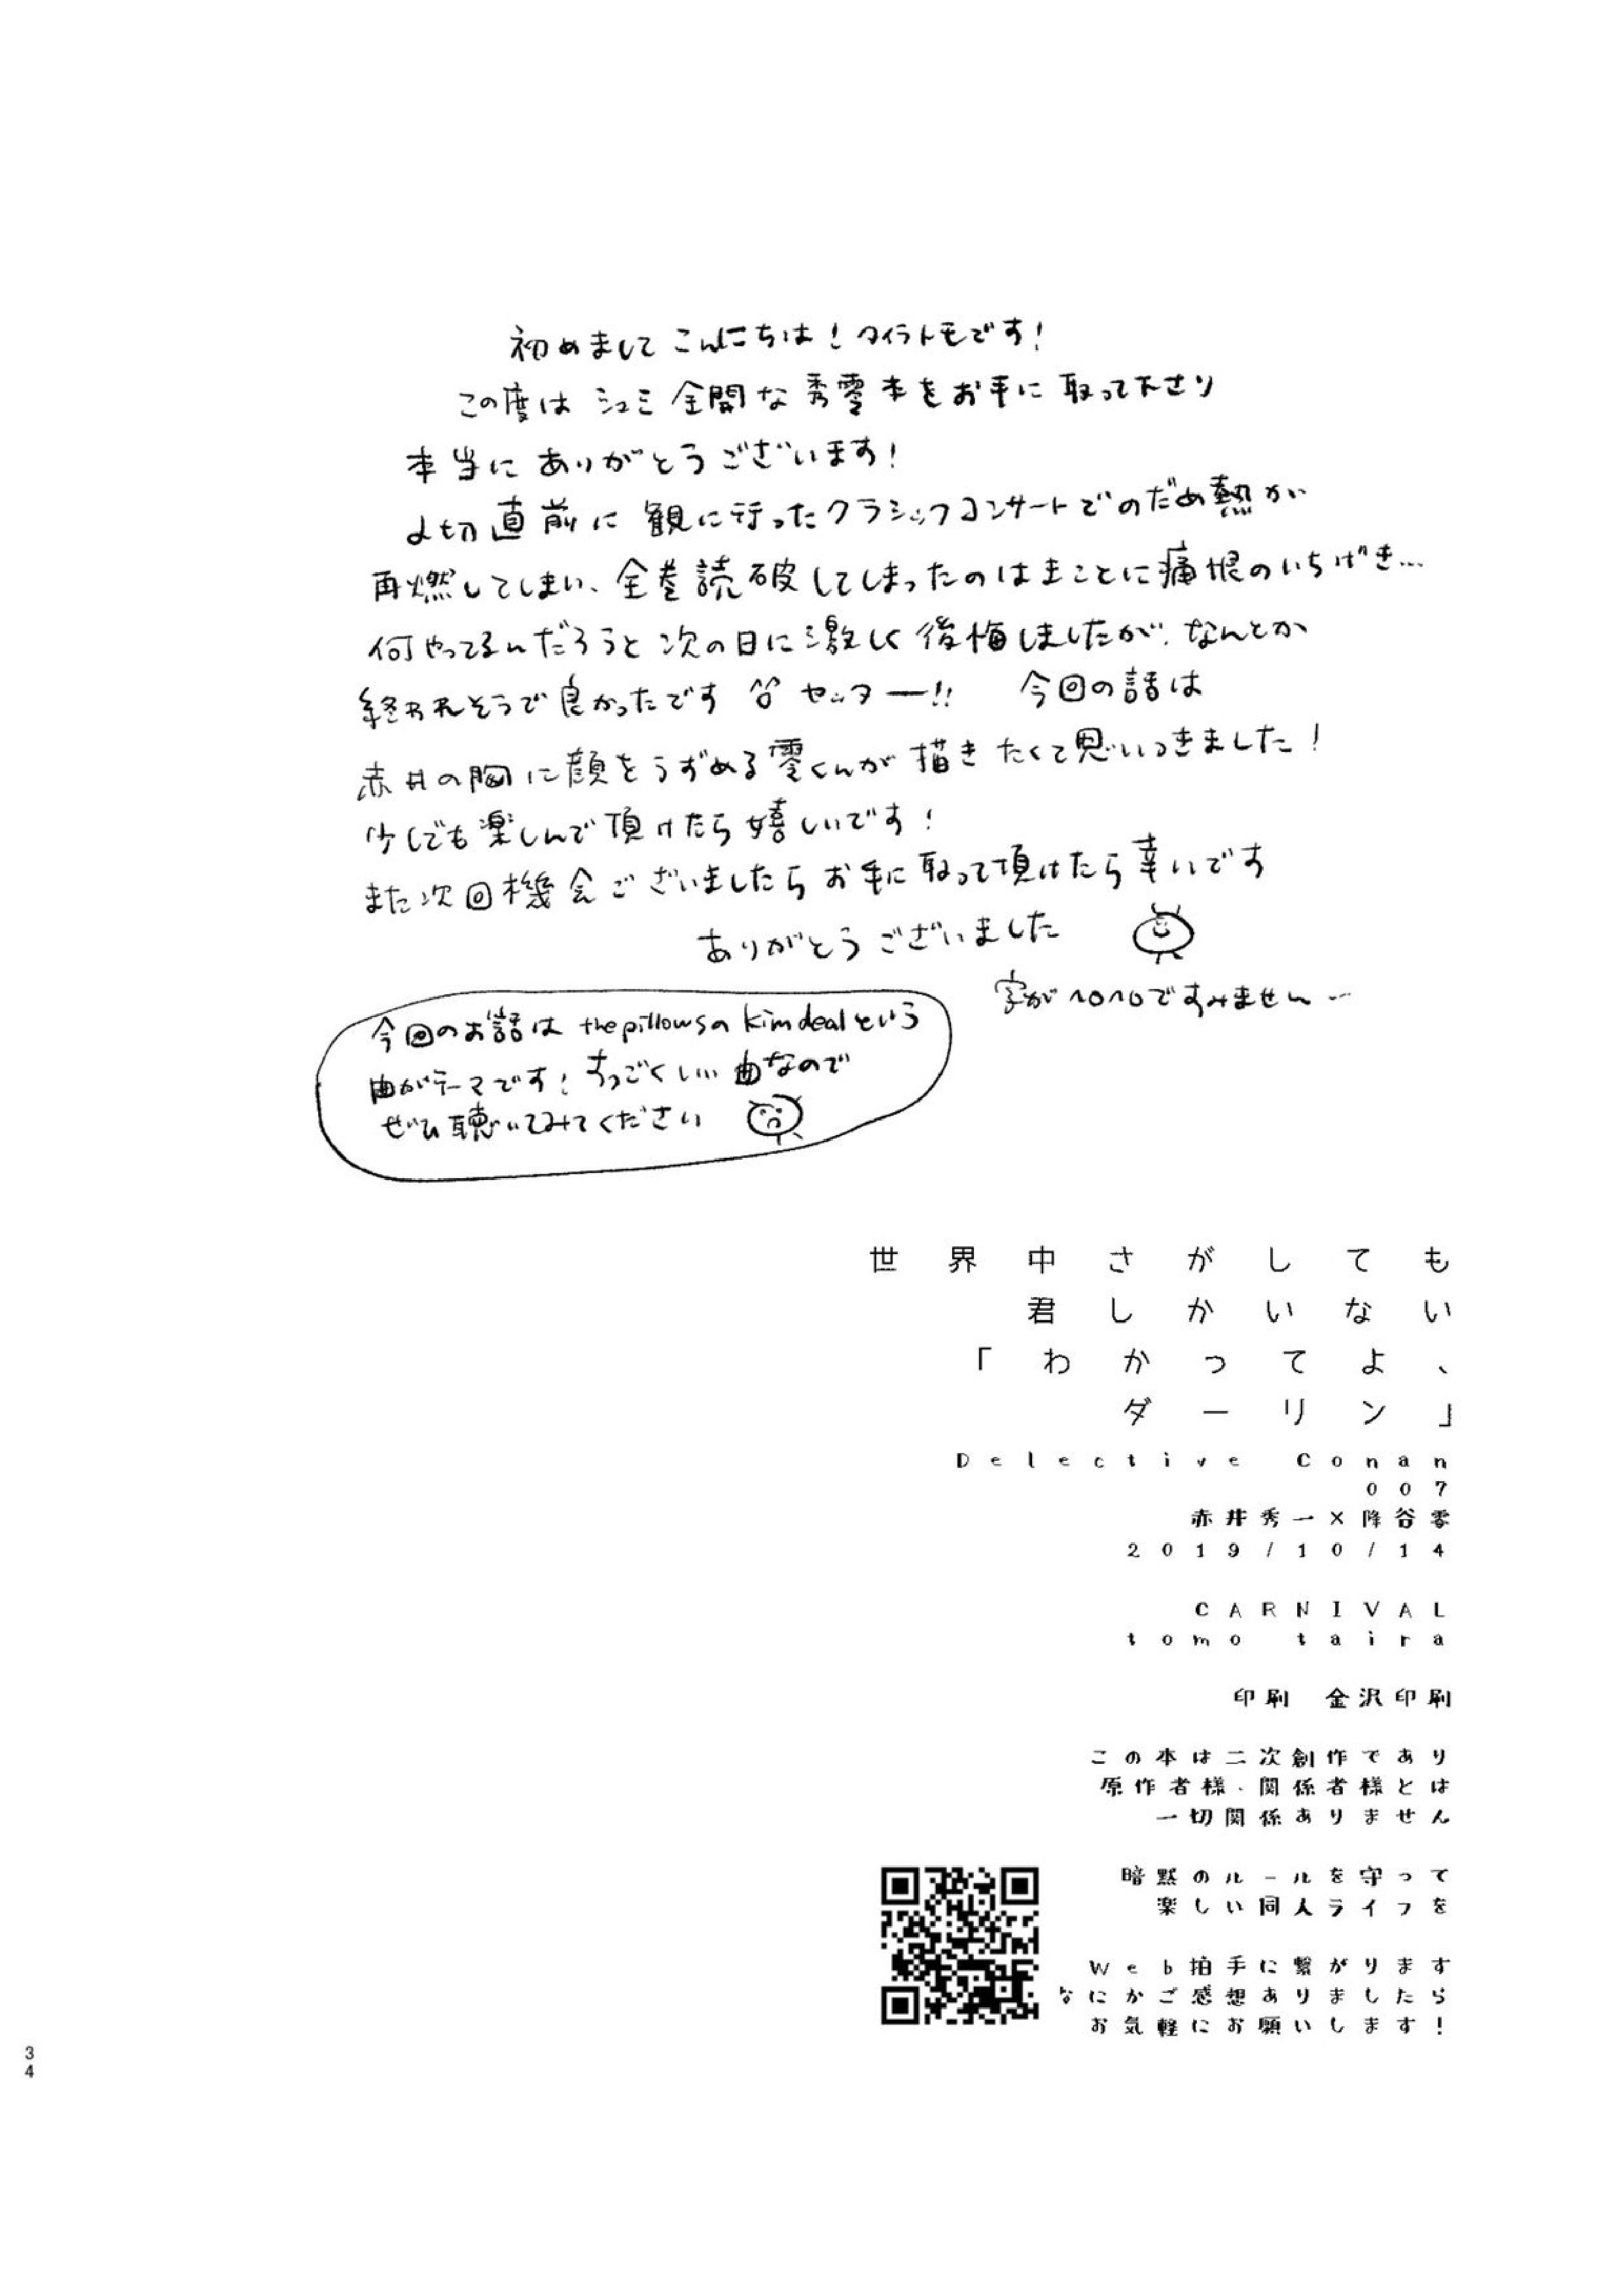 初めまして こんにちは！タイラトモです！
この度は シュミ全開な秀零本をお手に取って下さり
本当にありがとうございます！
〆切直前に観に行ったクラシックコンサートでのだめ熱が
再燃してしまい、全巻読破してしまったのはまことに痛恨のいちげき…
何やってるんだろうと次の日に激しく後悔しましたが、なんとか
終われそうで良かったです セーター!! 今回の話は
赤井の胸に顔をうずめる零くんが描きたくて思いつきました！
少しでも楽しんで頂けたら嬉しいです！
また次回機会ございましたらお手に取って頂けたら幸いです
ありがとうございました
字がヘロヘロですみません…
今回のお話は the pillowsの kim dealという
曲がテーマです！すっごくいい曲なので
ぜひ聴いてみてください
世界中さがしても
君しかいない
「わかってよ、
ダーリン」
Detective Conan
007
赤井秀一×降谷零
2019/10/14
CARNIVAL
tomo taira
印刷 金沢印刷
この本は二次創作であり
原作者様、関係者様とは
一切関係ありません
暗黙のルールを守って
楽しい同人ライフを
Web拍手に繋がります
なにかご感想ありましたら
お気軽にお願いします！
34